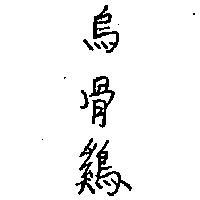 烏骨鷄